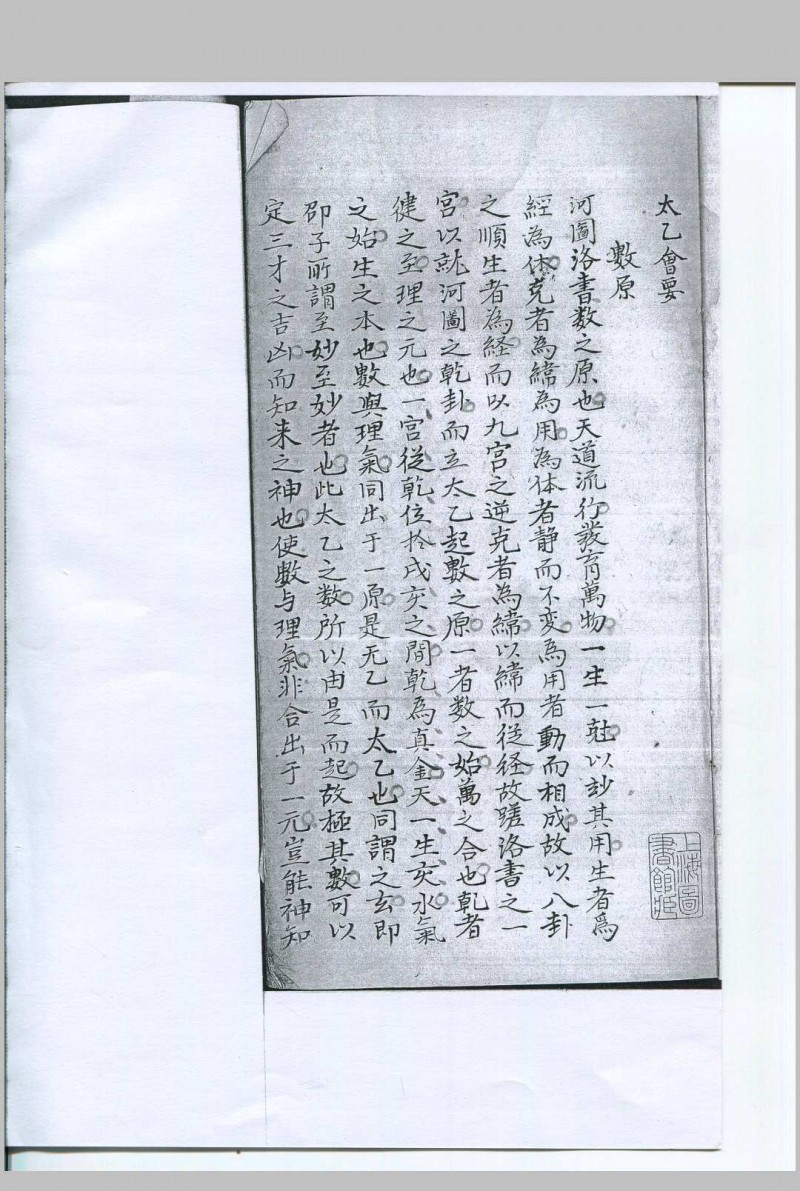 太乙會要
數原
河圖洛書数之原也天道流行發育萬物一生一尅以妙其用生者為
經為体克者為緯為用為体者静而不变為用者動而相成故以八卦
之順生者為経而以九宫之逆克者為緯以緯而従经故蹉洛書之一
宫以就河圖之乾卦而立太乙起數之原一者数之始萬之合也乹者
健之至理之元也一宫從乾位於戌亥之間乾為真金天一生亥水氣
之始生之本也數與理氣同出于一原是无乙而太乙也同謂之玄即
邵子所謂至妙至妙者也此太乙之数所以由是而起故極其數可以
定三才之吉凶而知来之神也使數与理氣非合出于一元豈能神知
上海圖書館藏